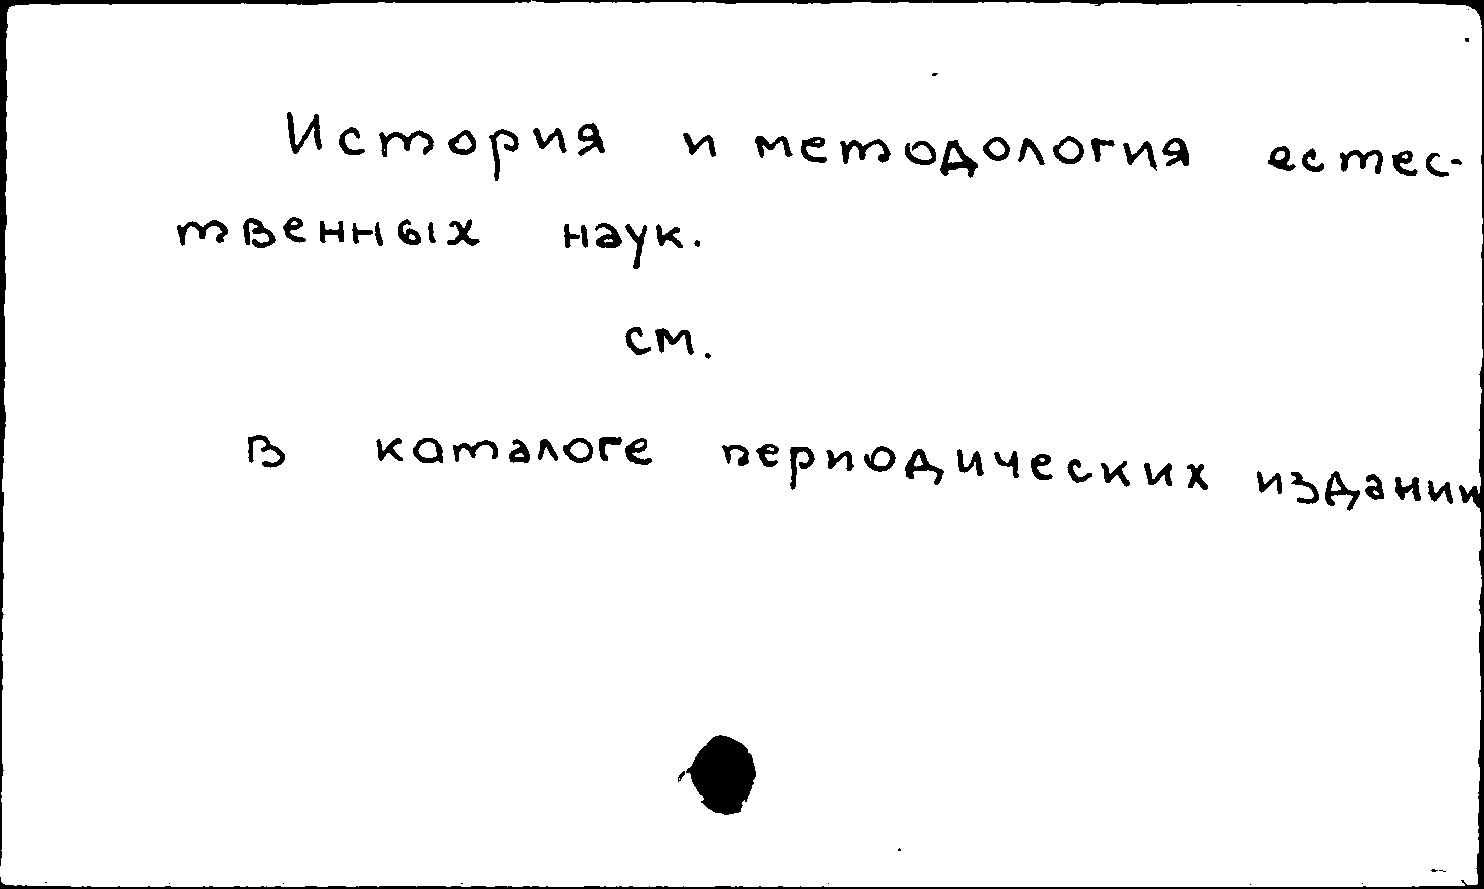 История и методология естес-
твенных наук.
см.
в каталоге периодических издании